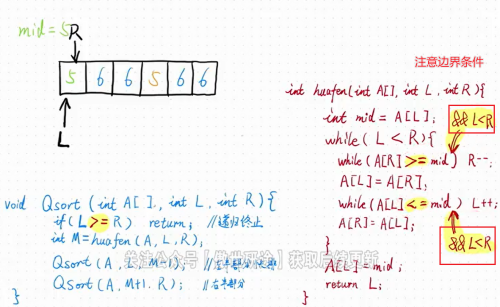 mid = 5
R
5 6 6 5 6 6
L
void Qsort (int A[], int L, int R){
if(L >= R) return; //递归终止
int M = huafen(A, L, R);
Qsort (A, L, M-1);
Qsort (A, M+1, R); //右半部分
}
注意边界条件
int huafen(int A[], int L, int R){
int mid = A[L];
&& L<R
while( L < R){
while(A[R] >= mid) R--;
A[L] = A[R];
while(A[L] <= mid) L++;
A[R] = A[L];
&& L<R
}
A[L] = mid;
return L;
}